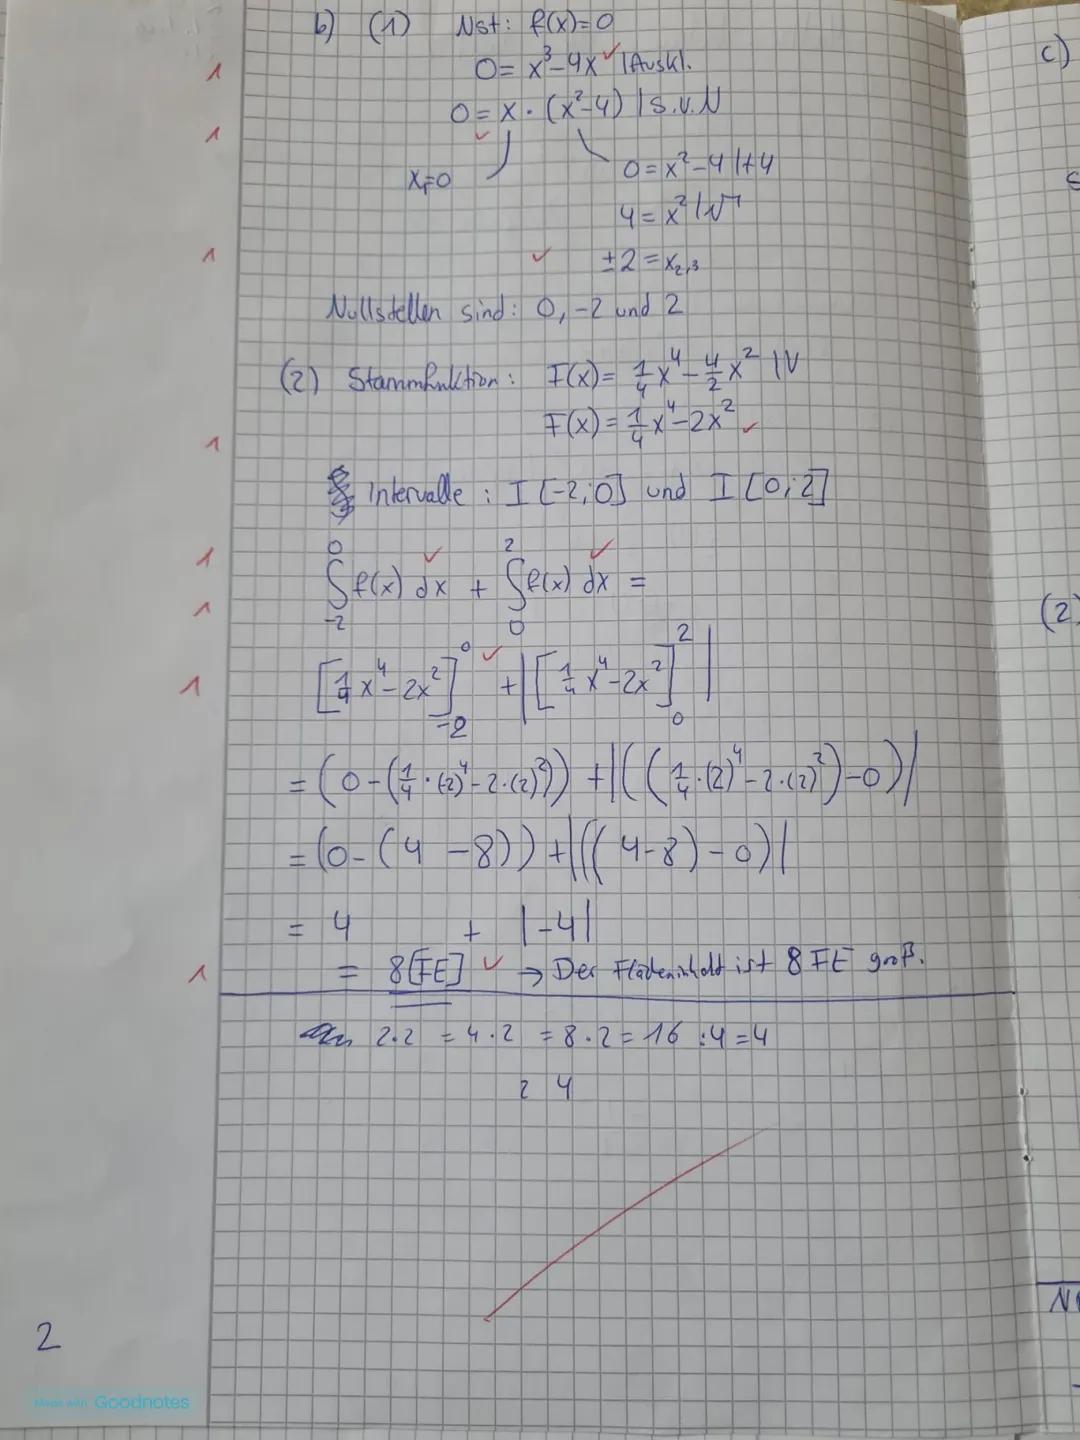 b) (1) Nst: f(x)=0
1 0 = x³-4x |Auskl.
1 0 = x · (x²-4) | S.v.N
x₁=0 0 = x²-4 |+4
4 = x² |√
1 ±2 = x₂,₃
Nullstellen sind: 0, -2 und 2
(2) Stammfunktion: F(x) = 1/4 x⁴ - 4/2 x² |V
1 F(x) = 1/4 x⁴ - 2x²
Intervalle: I [-2;0] und I [0;2]
1 ∫₋₂⁰ f(x) dx + ∫₀² f(x) dx =
1
1 [1/4 x⁴ - 2x²]₋₂⁰ + |[1/4 x⁴ - 2x²]₀²|
= (0-(1/4 · (-2)⁴ - 2·(2)²)) + |((1/4 · (2)⁴ - 2·(2)²)-0)|
= (0-(4 -8)) + |((4-8)-0)|
= 4 + |-4|
1 = 8[FE] → Der Flächeninhalt ist 8 FE groß.
2·2 = 4·2 = 8·2 = 16 :4 = 4
2 4
2
Made with Goodnotes
c)
(2)